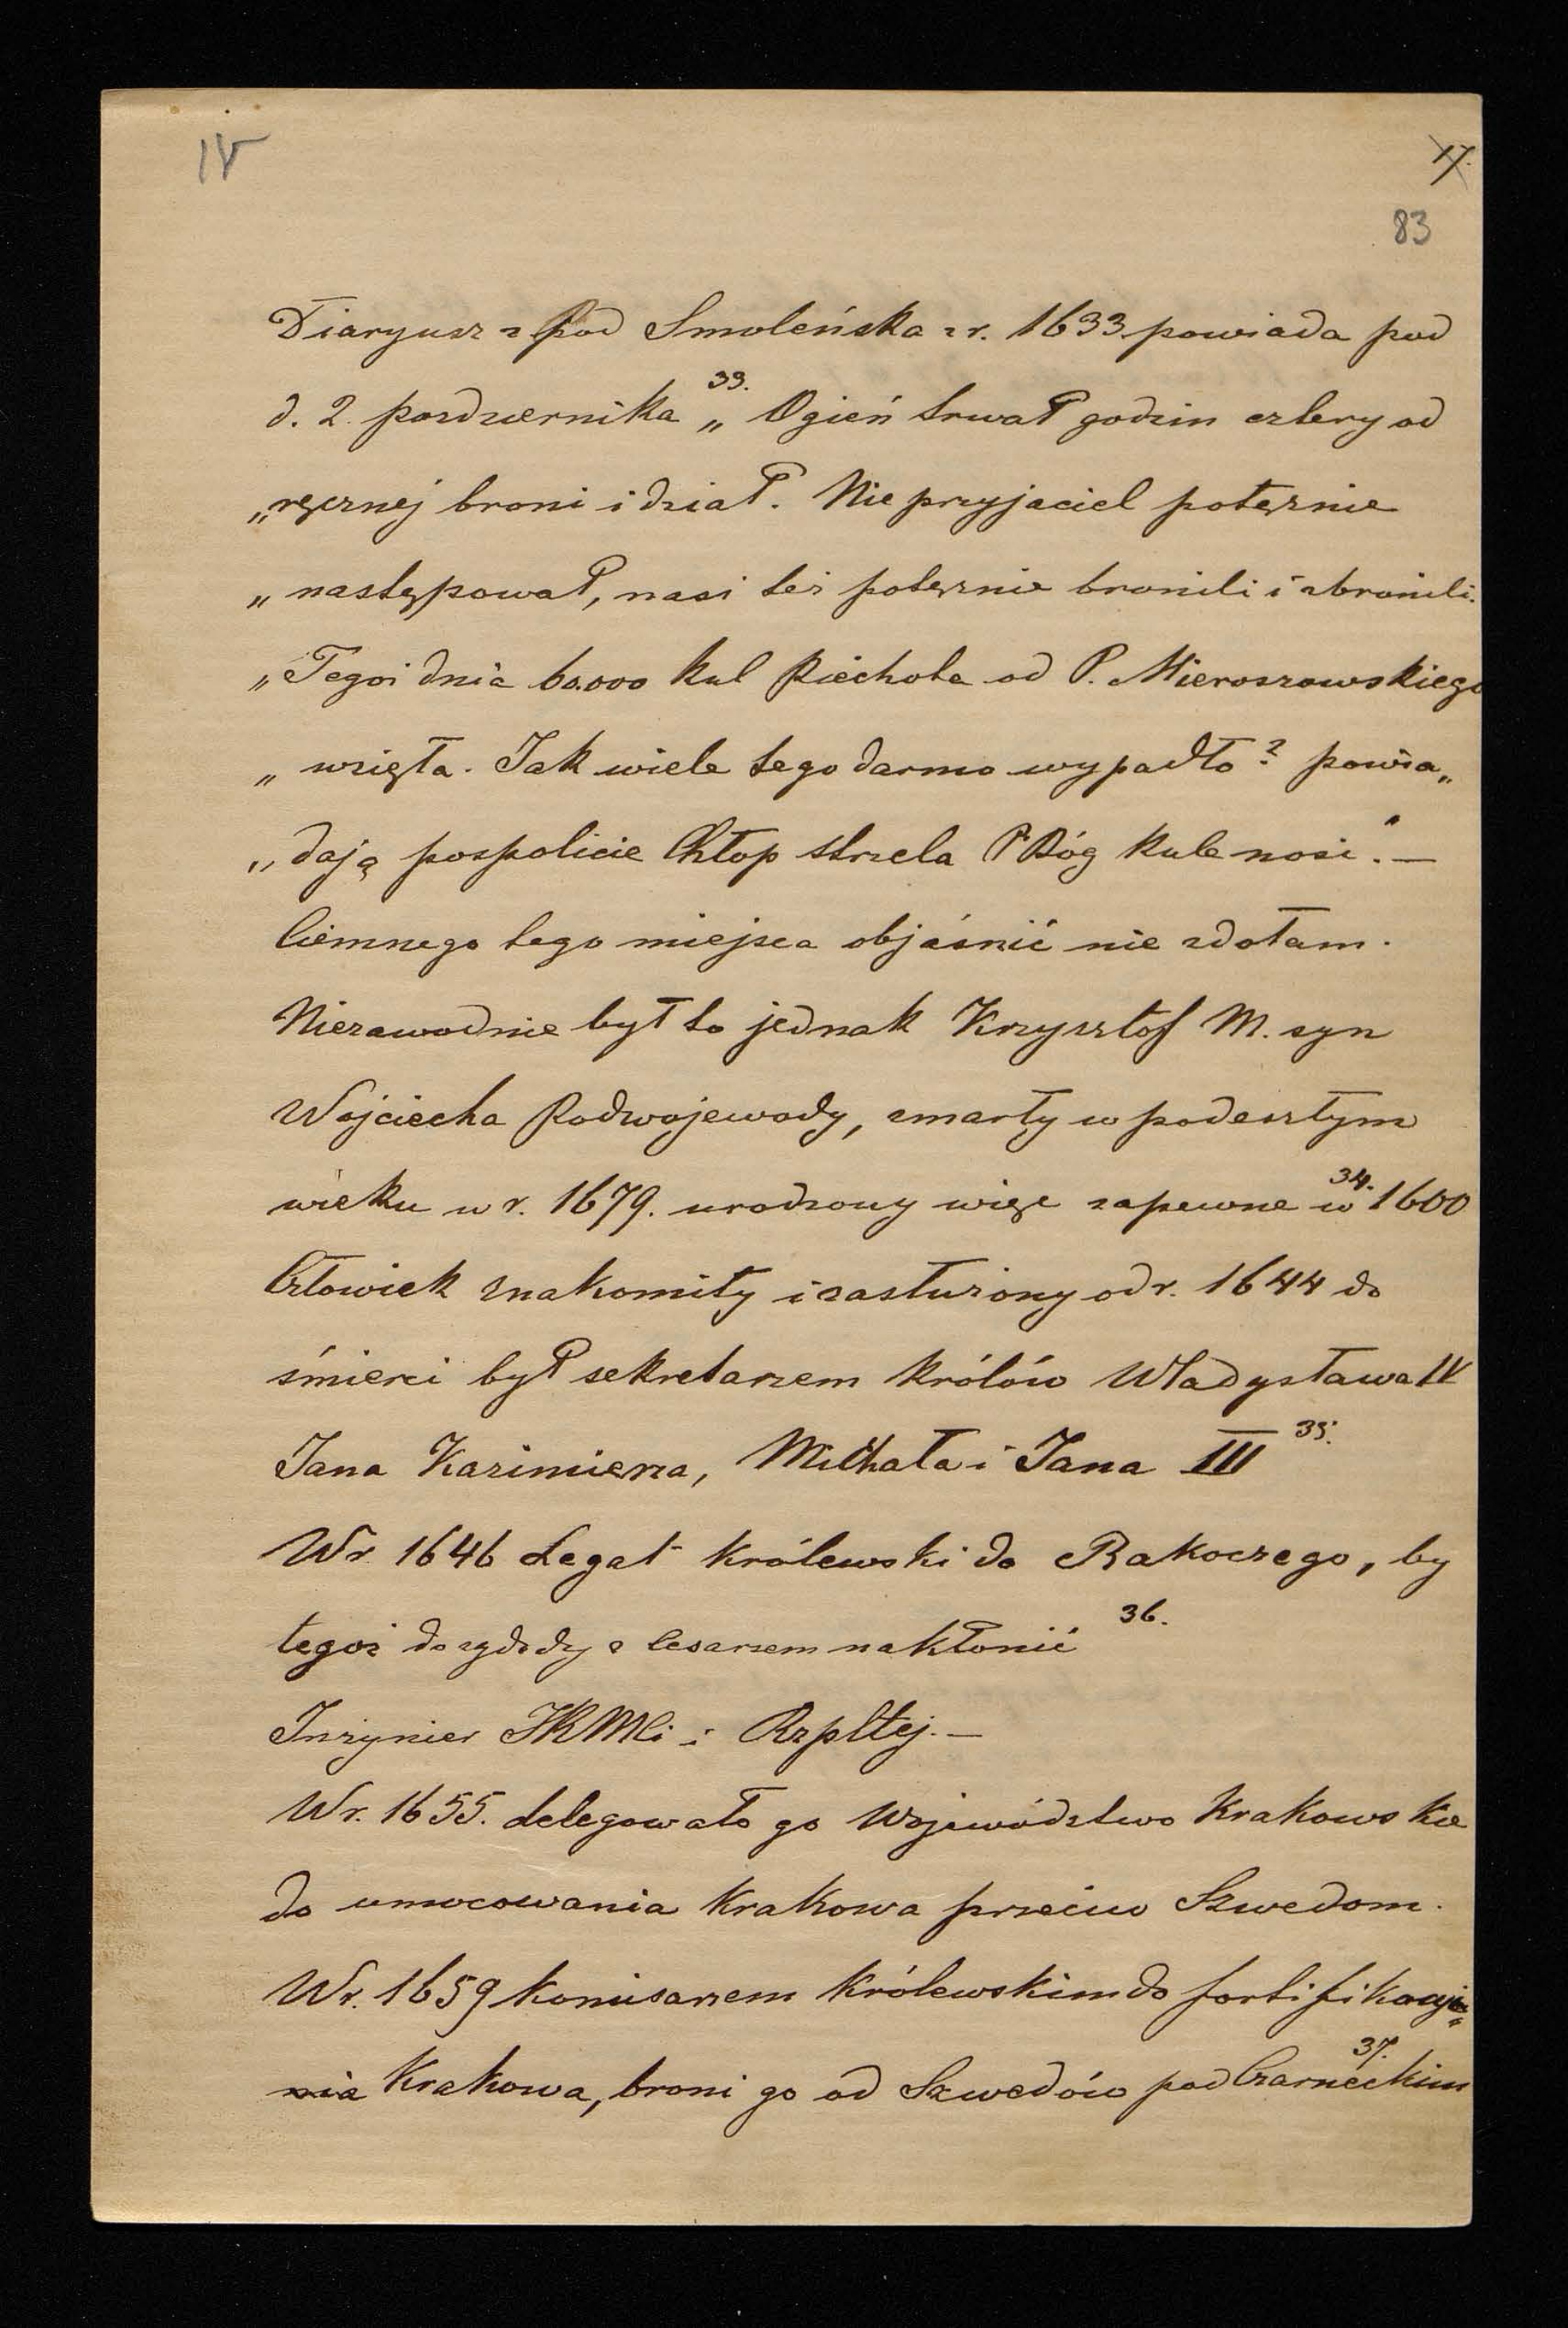 18
17.
83
Diaryusz z pod Smoleńska z r. 1633 powiada pod
d. 2. pazdziernika 33. „Ogień trwał godzin cztery od
„ręcznej broni i dział. Nieprzyjaciel potęznie
„następował, nasi też potęznie bronili i zbronili.
„Tegoż dnia 60.000 kul Piechota od P. Mieroszowskiego
„wzięła. Jak wiele tego darmo wypadło? powia„
„dają pospolicie Chłop strzela P. Bóg kule nosi". —
Ciemnego tego miejsca objaśnić nie zdołam.
Niezawodnie był to jednak Krzysztof M. syn
Wojciecha Podwojewody, zmarły w podeszłym
wieku w r. 1679. urodzony więc zapewne w 34. 1600
Człowiek znakomity i zasłużony od r. 1644 do
śmierci był sekretarzem królów Władysława IV
Jana Kazimierza, Michała i Jana III 35.
W r. 1646 Legat królewski do Rakoczego, by
tegoż do zgody z Cesarzem nakłonić 36.
Inżynier JKMci i Rzpltej. —
W r. 1655. delegowało go Województwo Krakowskie
do umocowania Krakowa przeciw Szwedom.
W r. 1659 komisarzem królewskim do fortifikacyi
nia Krakowa, broni go od Szwedów pod Czarneckim 37.